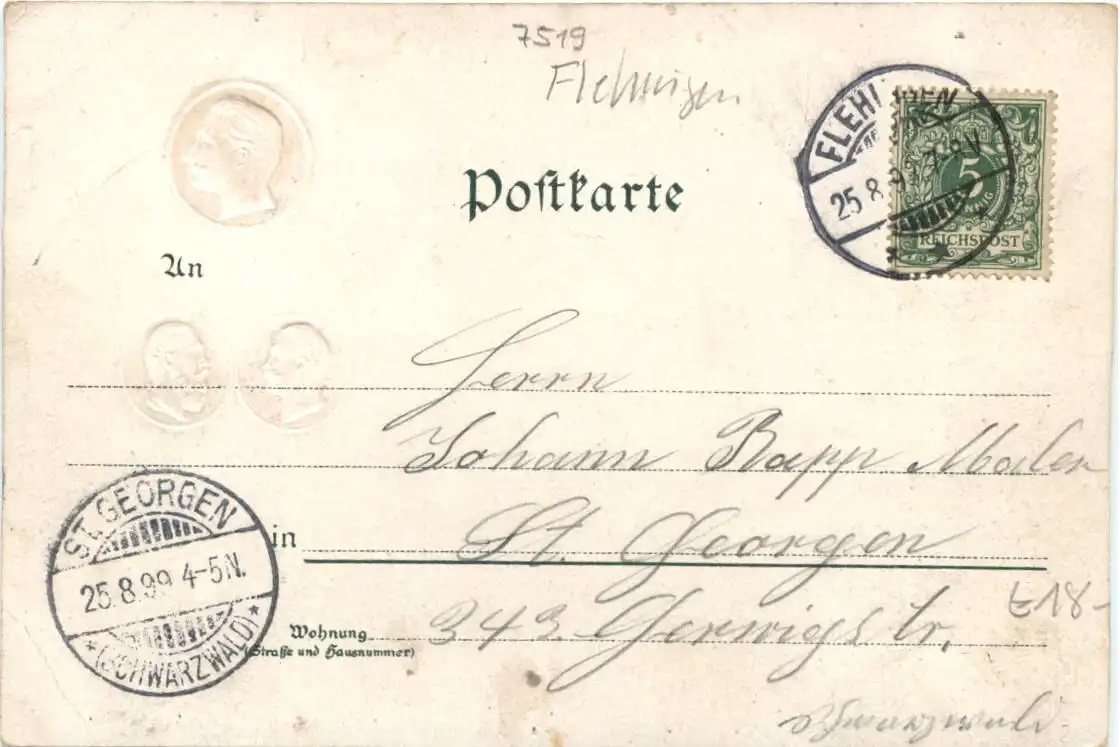 7519
Flehingen
Postkarte
FLEHINGEN
25.8.99 7-8V
5
REICHSPOST
An
Herrn
Johann Rapp Maler
in St. Georgen
ST. GEORGEN
25.8.99 4-5N.
* (SCHWARZWALD) *
Wohnung
(Straße und Hausnummer)
343 Gerwigstr.
£18-
Schwarzwald.